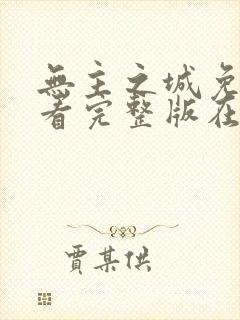 無主之城免
看完整版在
賈某供